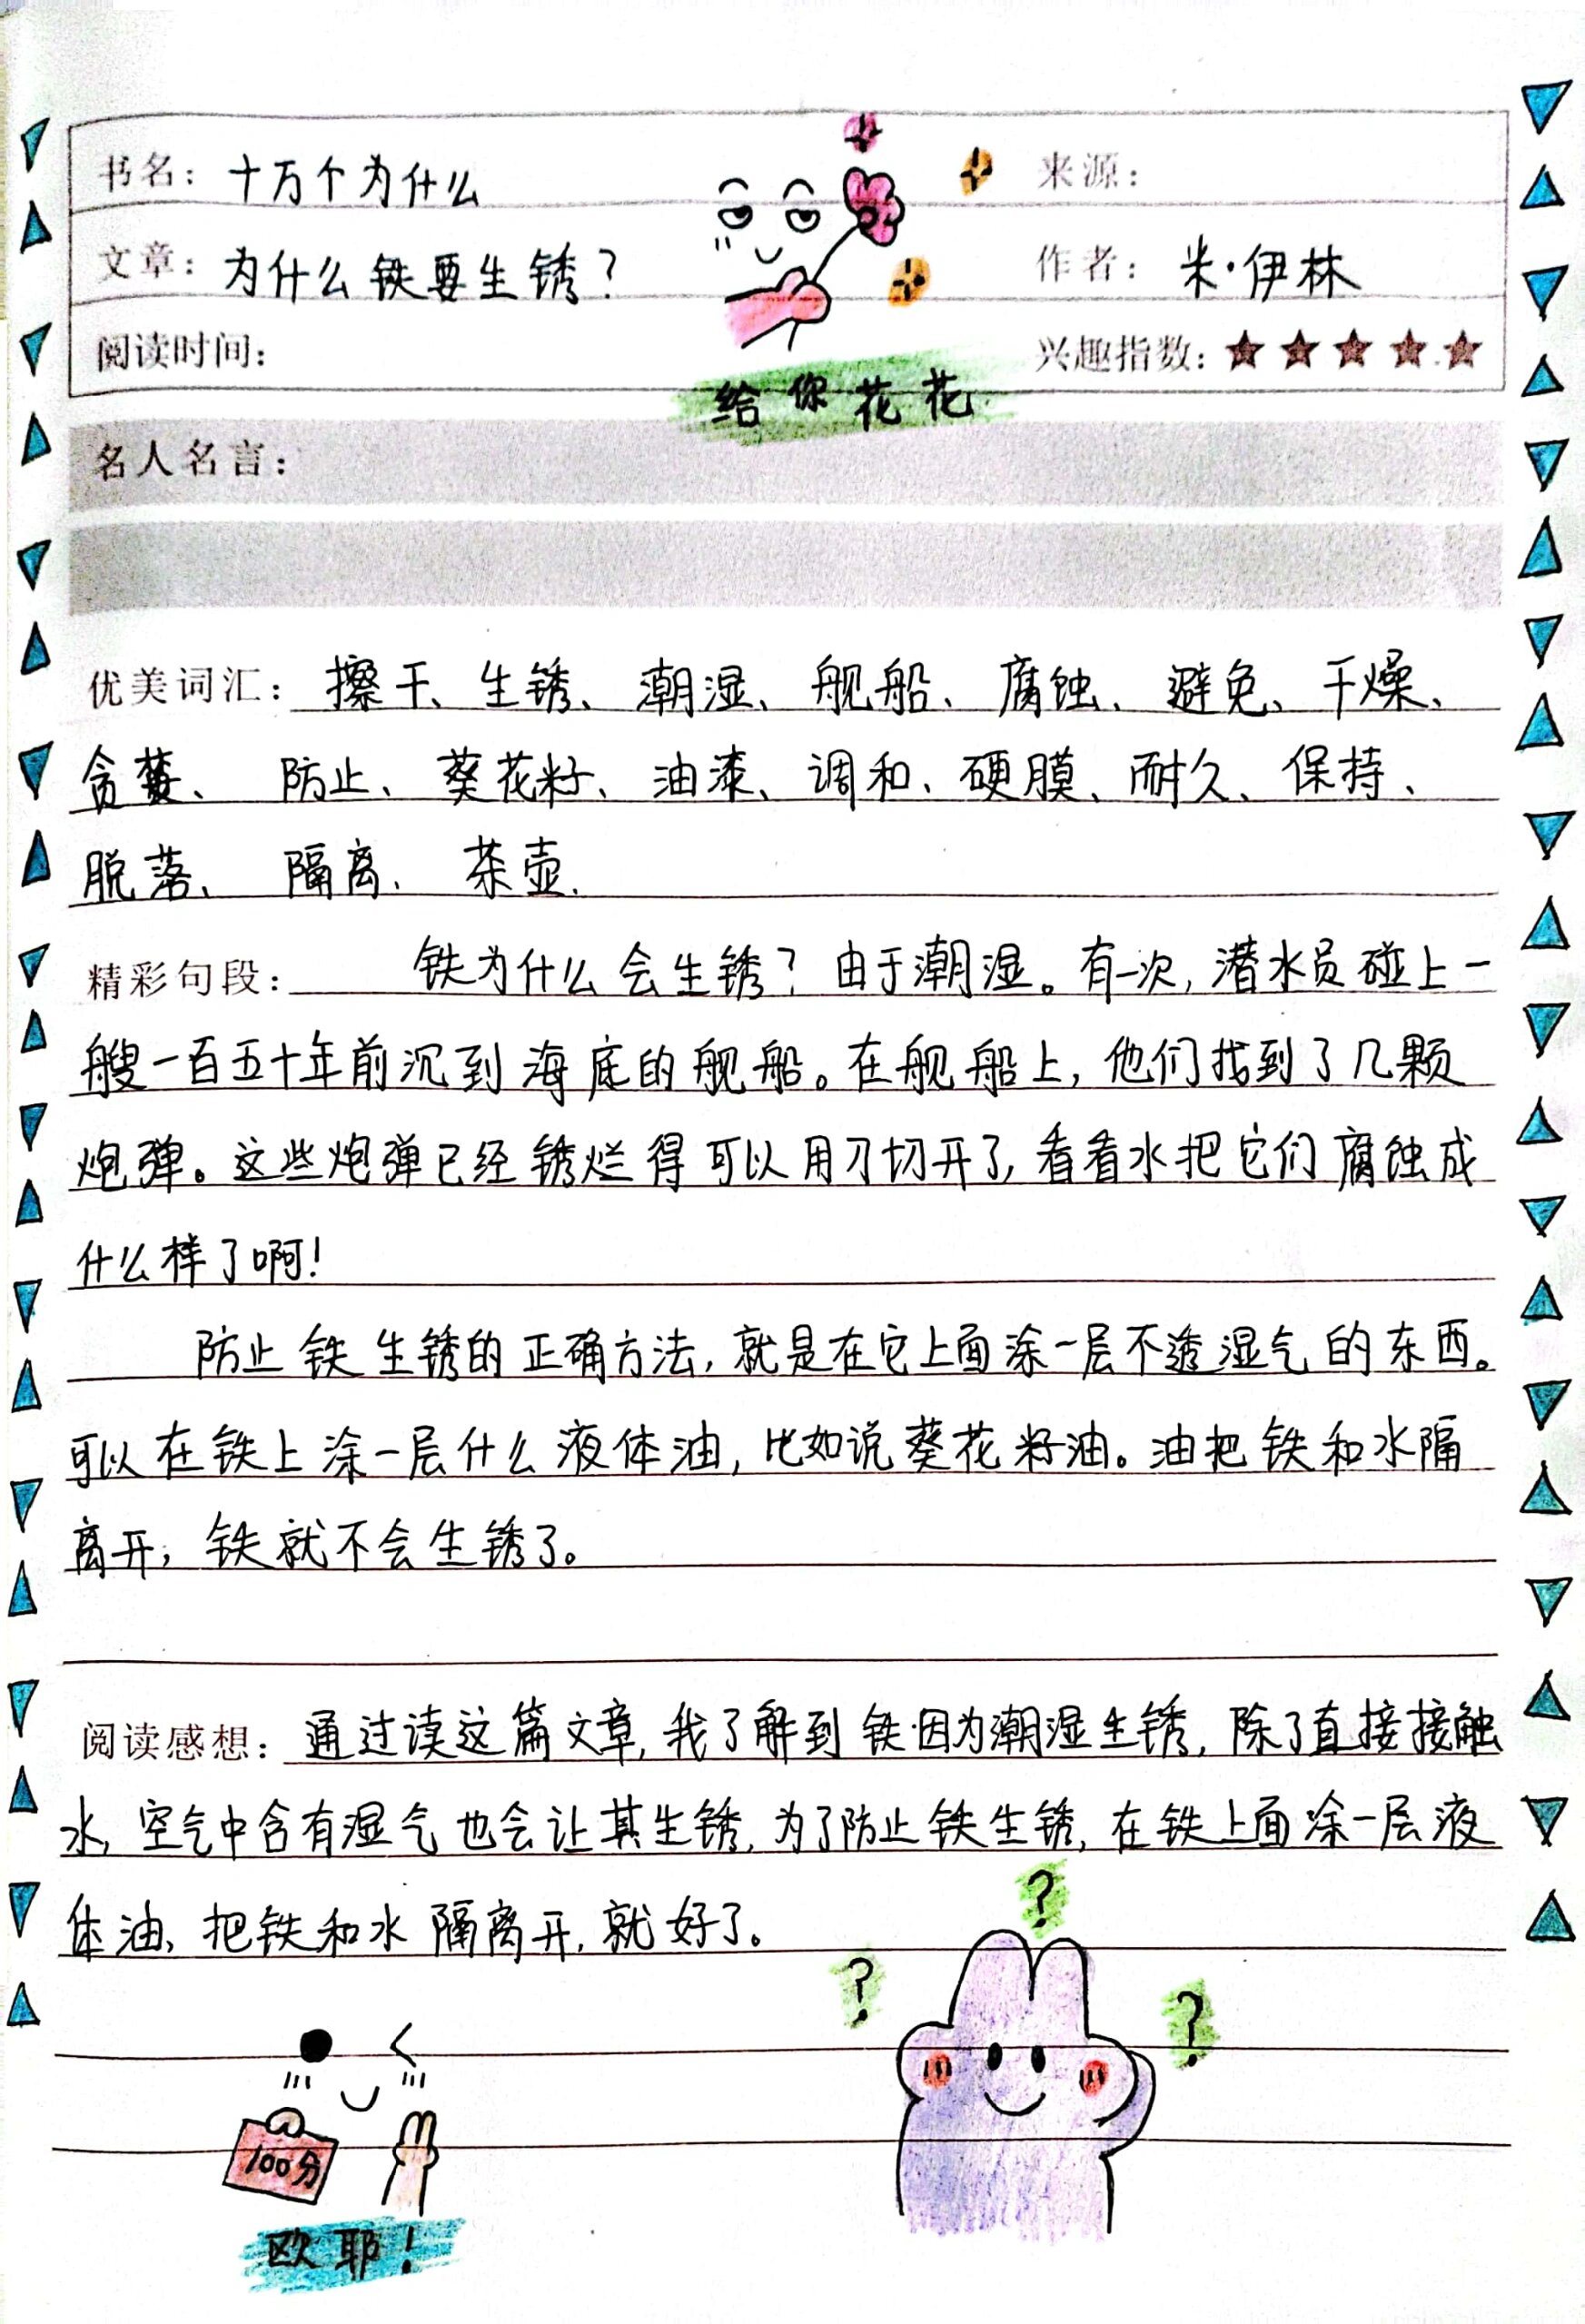 书名：十万个为什么
来源：
文章：为什么铁要生锈？
作者：米·伊林
阅读时间：
兴趣指数：★★★★★
给你花花
名人名言：
优美词汇：擦干、生锈、潮湿、舰船、腐蚀、避免、干燥、
贪婪、防止、葵花籽、油漆、调和、硬膜、耐久、保持、
脱落、隔离、茶壶、
精彩句段：铁为什么会生锈？由于潮湿。有一次，潜水员碰上一
艘一百五十年前沉到海底的舰船。在舰船上，他们找到了几颗
炮弹。这些炮弹已经锈烂得可以用刀切开了，看看水把它们腐蚀成
什么样了啊！
防止铁生锈的正确方法，就是在它上面涂一层不透湿气的东西。
可以在铁上涂一层什么液体油，比如说葵花籽油。油把铁和水隔
离开，铁就不会生锈了。
阅读感想：通过读这篇文章，我了解到铁因为潮湿生锈，除了直接接触
水，空气中含有湿气也会让其生锈，为了防止铁生锈，在铁上面涂一层液
体油，把铁和水隔离开，就好了。
?
?
?
100分
欧耶！